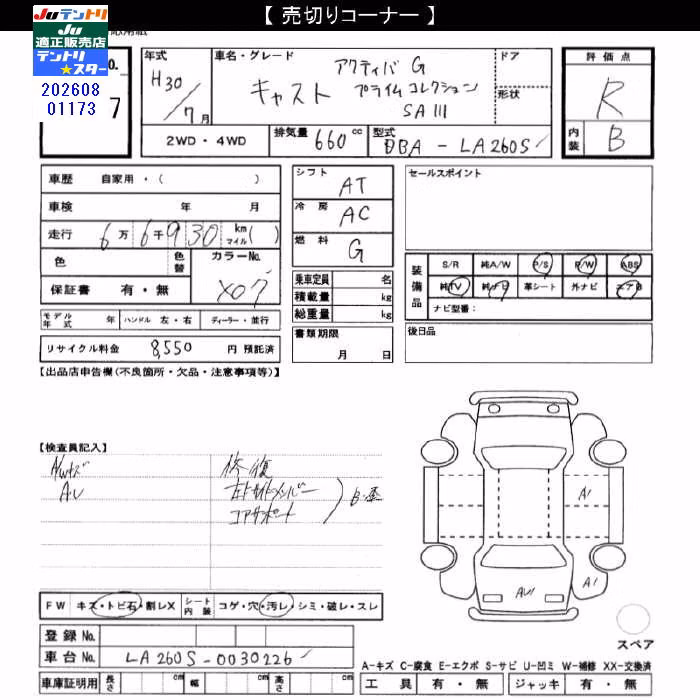 【 売切りコーナー 】
JUテントリ
JU
適正販売店
テントリ
★スター
202608
01173
7
年式
H30/7月
車名・グレード
アクティバ G
キャスト プライムコレクション
SA III
ドア
形状
評価点
R
内装 B
2WD・4WD
排気量 660 cc
型式 DBA - LA260S
車歴 自家用・( )
車検 年 月
走行 6万6千930 km マイル( )
色
色替
カラーNo.
X07
保証書 有・無
シフト AT
冷房 AC
燃料 G
乗車定員 名
積載量 kg
総重量 kg
書類期限
月 日
セールスポイント
装備品
S/R 純A/W P/S P/W ABS
純TV 純ナビ 革シート 外ナビ エアB
ナビ型番:
後日品
モデル年式 年 ハンドル 左・右 ディーラー・並行
リサイクル料金 8,550 円 預託済
【出品店申告欄(不良箇所・欠品・注意事項等)】
【検査員記入】
AU
修復
コアサポート
A1
A1
AU1
FW キズ・トビ石・割レX シート内装 コゲ・穴・汚レ・シミ・破レ・スレ
登録No.
車台No. LA260S-0030226
車庫証明用 長さ cm 幅 cm 高さ cm
スペア
A-キズ C-腐食 E-エクボ S-サビ U-凹ミ W-補修 XX-交換済
工具 有・無 ジャッキ 有・無